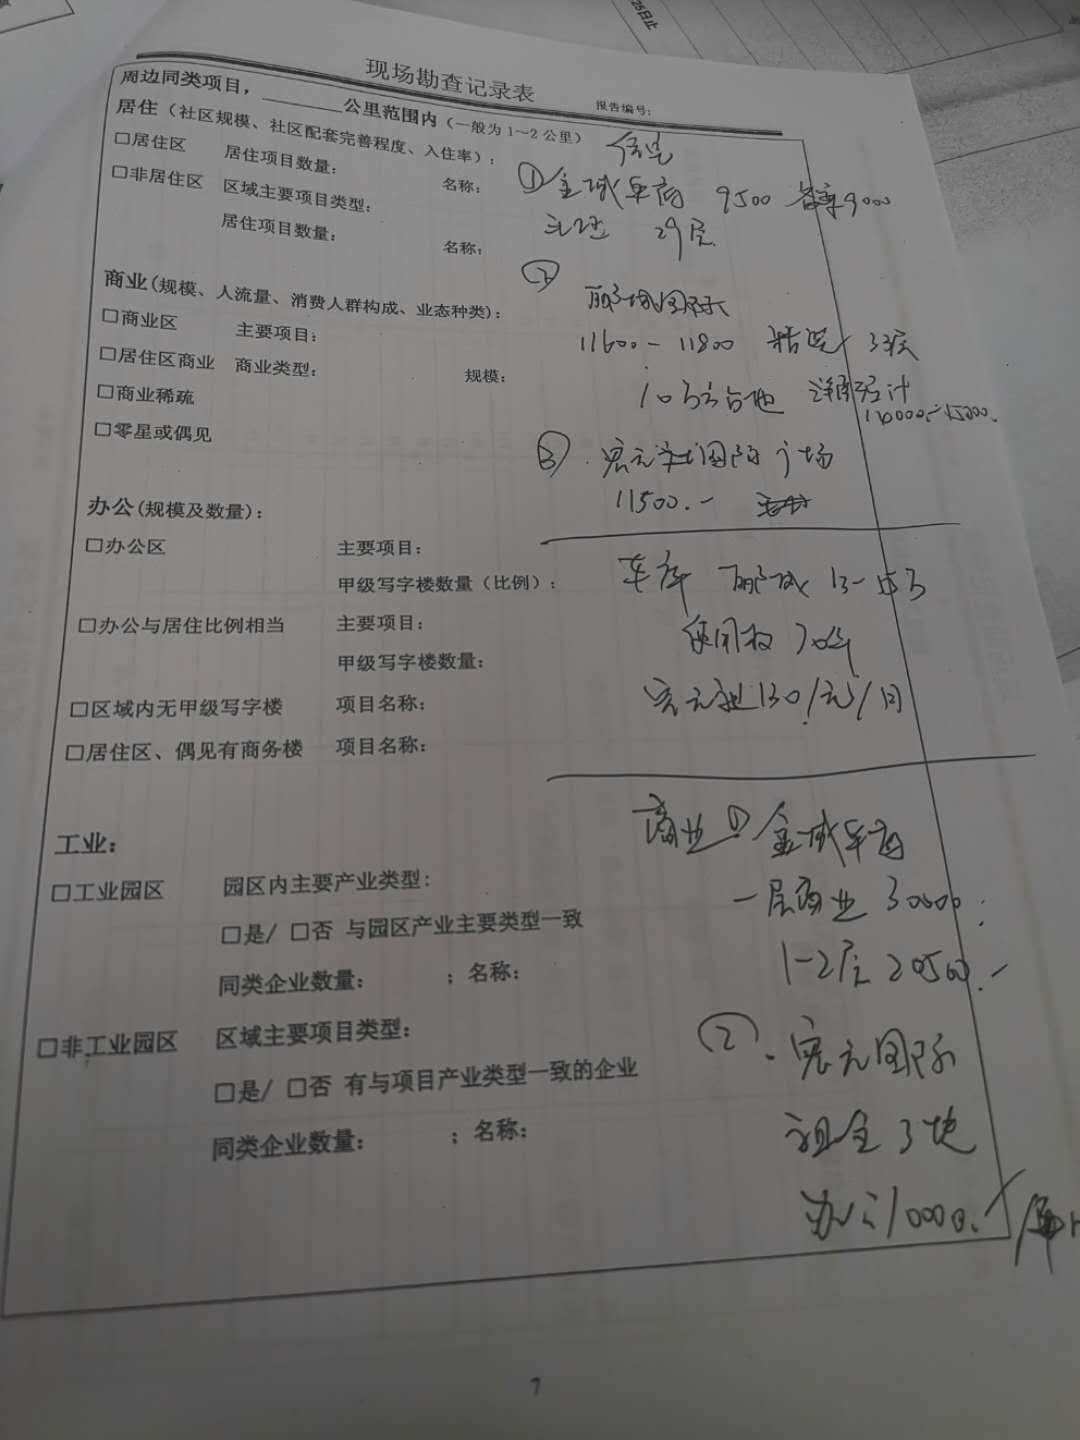 25日止
现场勘查记录表
报告编号:
周边同类项目，________公里范围内（一般为1～2公里）
居住（社区规模、社区配套完善程度、入住率）： 住宅
□居住区 居住项目数量： 名称： ① 金域华府 9500 9000
□非居住区 区域主要项目类型： 29层
居住项目数量： 名称：
②
商业(规模、人流量、消费人群构成、业态种类)： 丽城国际
□商业区 主要项目： 11600.-11800 精装 33层
□居住区商业 商业类型： 规模： 10000.-15000.
□商业稀疏
□零星或偶见 ③. 宏元 国际广场
11500.-
办公(规模及数量)：
□办公区 主要项目： 车库 丽城 13-15万
甲级写字楼数量（比例）： 使用权 70年
□办公与居住比例相当 主要项目：
甲级写字楼数量： 宏元 130/元/月
□区域内无甲级写字楼 项目名称：
□居住区、偶见有商务楼 项目名称：
商业① 金域华府
工业：
□工业园区 园区内主要产业类型: 一层商业 30000.
□是/ □否 与园区产业主要类型一致
1-2层 20500.-
同类企业数量： ；名称：
□非工业园区 区域主要项目类型： ②. 宏元国际
□是/ □否 有与项目产业类型一致的企业
同类企业数量： ；名称： 租金
办公10000.
7